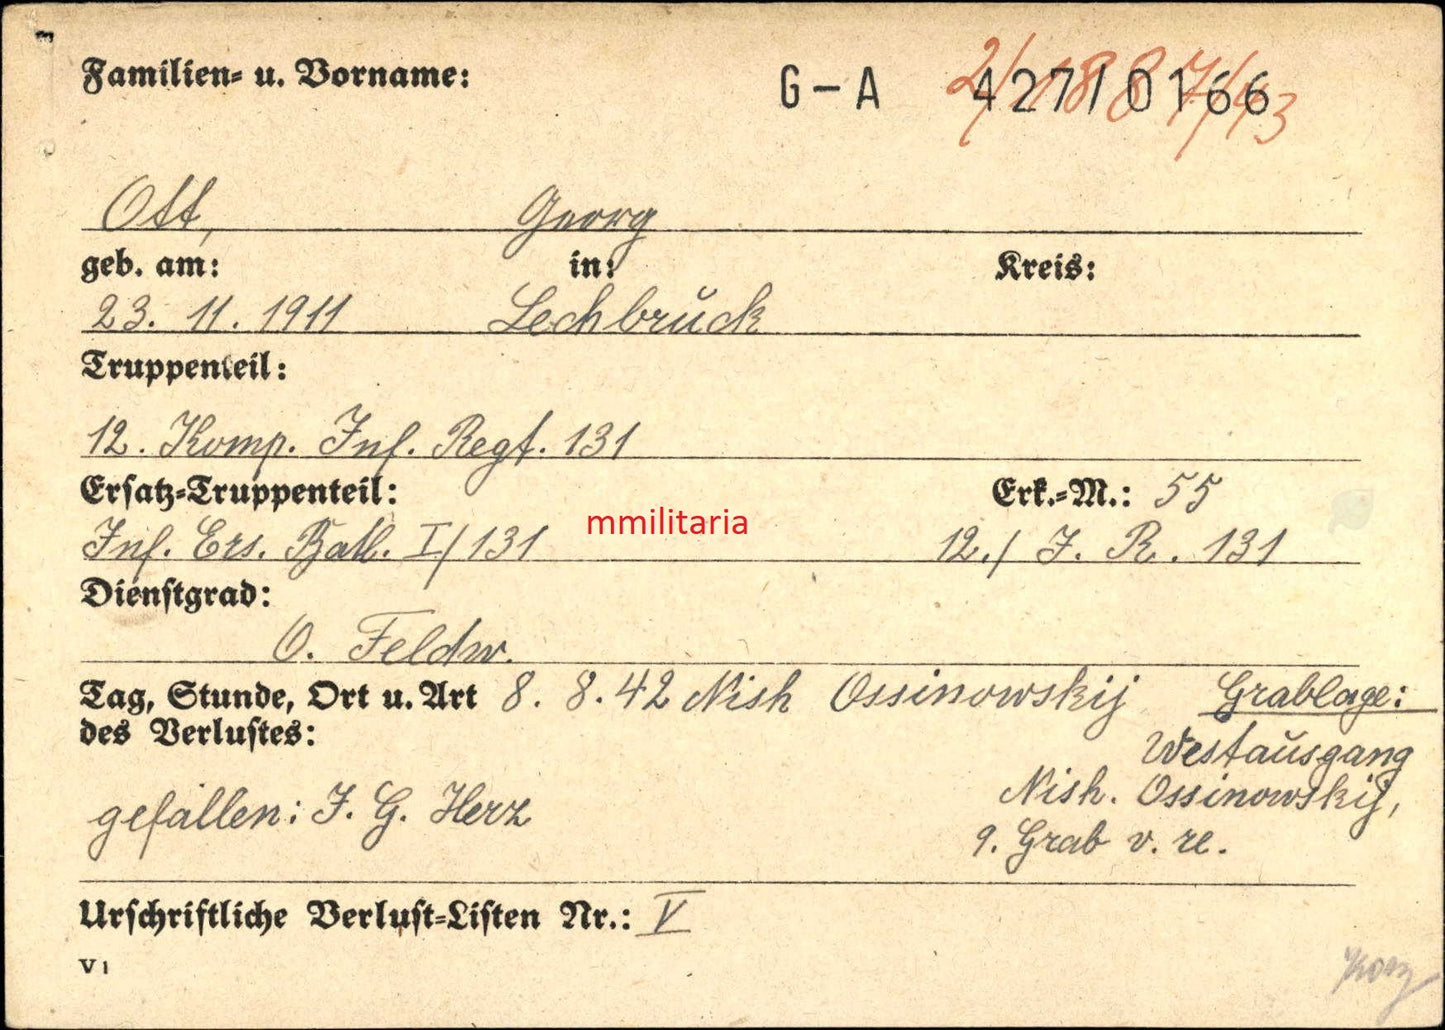 Familien- u. Vorname:
G-A 427/0166
2/1887/43
Ott, Georg
geb. am: in: Kreis:
23. 11. 1911 Lechbruck
Truppenteil:
12. Komp. Inf. Regt. 131
Ersatz-Truppenteil: Erk.-M.: 55
Inf. Ers. Batl. I/131 12./ J. R. 131
mmilitaria
Dienstgrad:
O. Feldw.
Tag, Stunde, Ort u. Art 8. 8. 42 Nish Ossinowskij Grablage:
des Verlustes: Westausgang
Nish. Ossinowskij,
gefallen: J. G. Herz
9. Grab v. re.
Urschriftliche Verlust-Listen Nr.: V
V 1